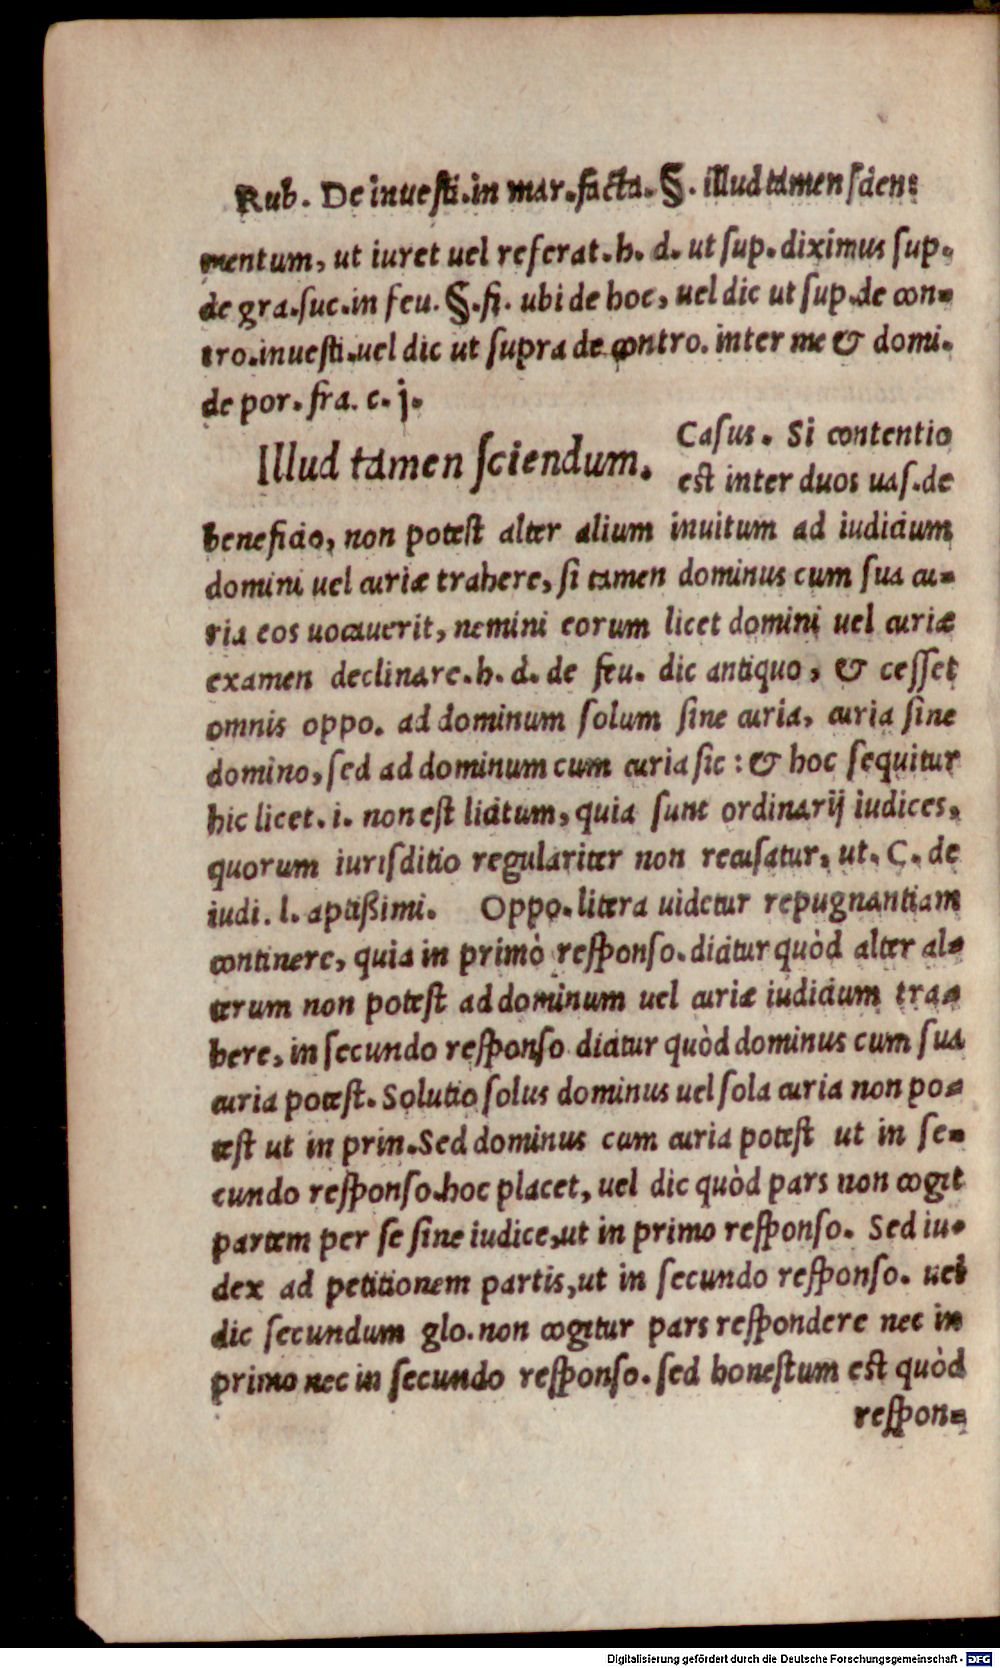 Rub. De inuesti.in mar.facta. §. illud tamen scien:
mentum, ut iuret uel referat.h. d. ut sup.diximus sup.
de gra.suc.in feu. §.fi. ubi de hoc, uel dic ut sup.de con=
tro.inuesti.uel dic ut supra de contro. inter me & domi.
de por. fra. c. j.
Illud tamen sciendum. Casus. Si contentio
est inter duos uas.de
beneficio, non potest alter alium inuitum ad iudicium
domini uel curiæ trahere, si tamen dominus cum sua cu=
ria eos uocauerit, nemini eorum licet domini uel curiæ
examen declinare.h. d. de feu. dic antiquo, & cesset
omnis oppo. ad dominum solum sine curia, curia sine
domino, sed ad dominum cum curia sic : & hoc sequitur
hic licet. i. non est licitum, quia sunt ordinarij iudices,
quorum iurisditio regulariter non recusatur, ut. C. de
iudi. l. aptißimi. Oppo.litera uidetur repugnantiam
continere, quia in primò responso.dicitur quòd alter al=
terum non potest ad dominum uel curiæ iudicium tra=
here, in secundo responso dicitur quòd dominus cum sua
curia potest. Solutio solus dominus uel sola curia non po=
test ut in prin.Sed dominus cum curia potest ut in se=
cundo responso.hoc placet, uel dic quòd pars non cogit
partem per se sine iudice,ut in primo responso. Sed iu=
dex ad petitionem partis,ut in secundo responso. uel
dic secundum glo.non cogitur pars respondere nec in
primo nec in secundo responso.sed honestum est quòd
respon=
Digitalisierung gefördert durch die Deutsche Forschungsgemeinschaft - DFG